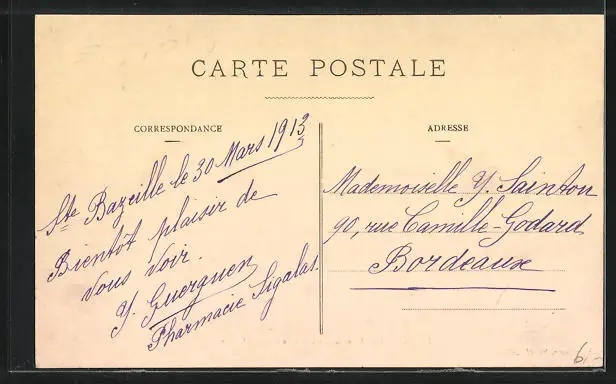 CARTE POSTALE
CORRESPONDANCE
ADRESSE
Ste Bazeille le 30 Mars 1913
Bientôt plaisir de
vous voir.
Y. Guerguen
Pharmacie Sigalas.
Mademoiselle Y. Sainton
90, rue Camille-Godard
Bordeaux
6,-